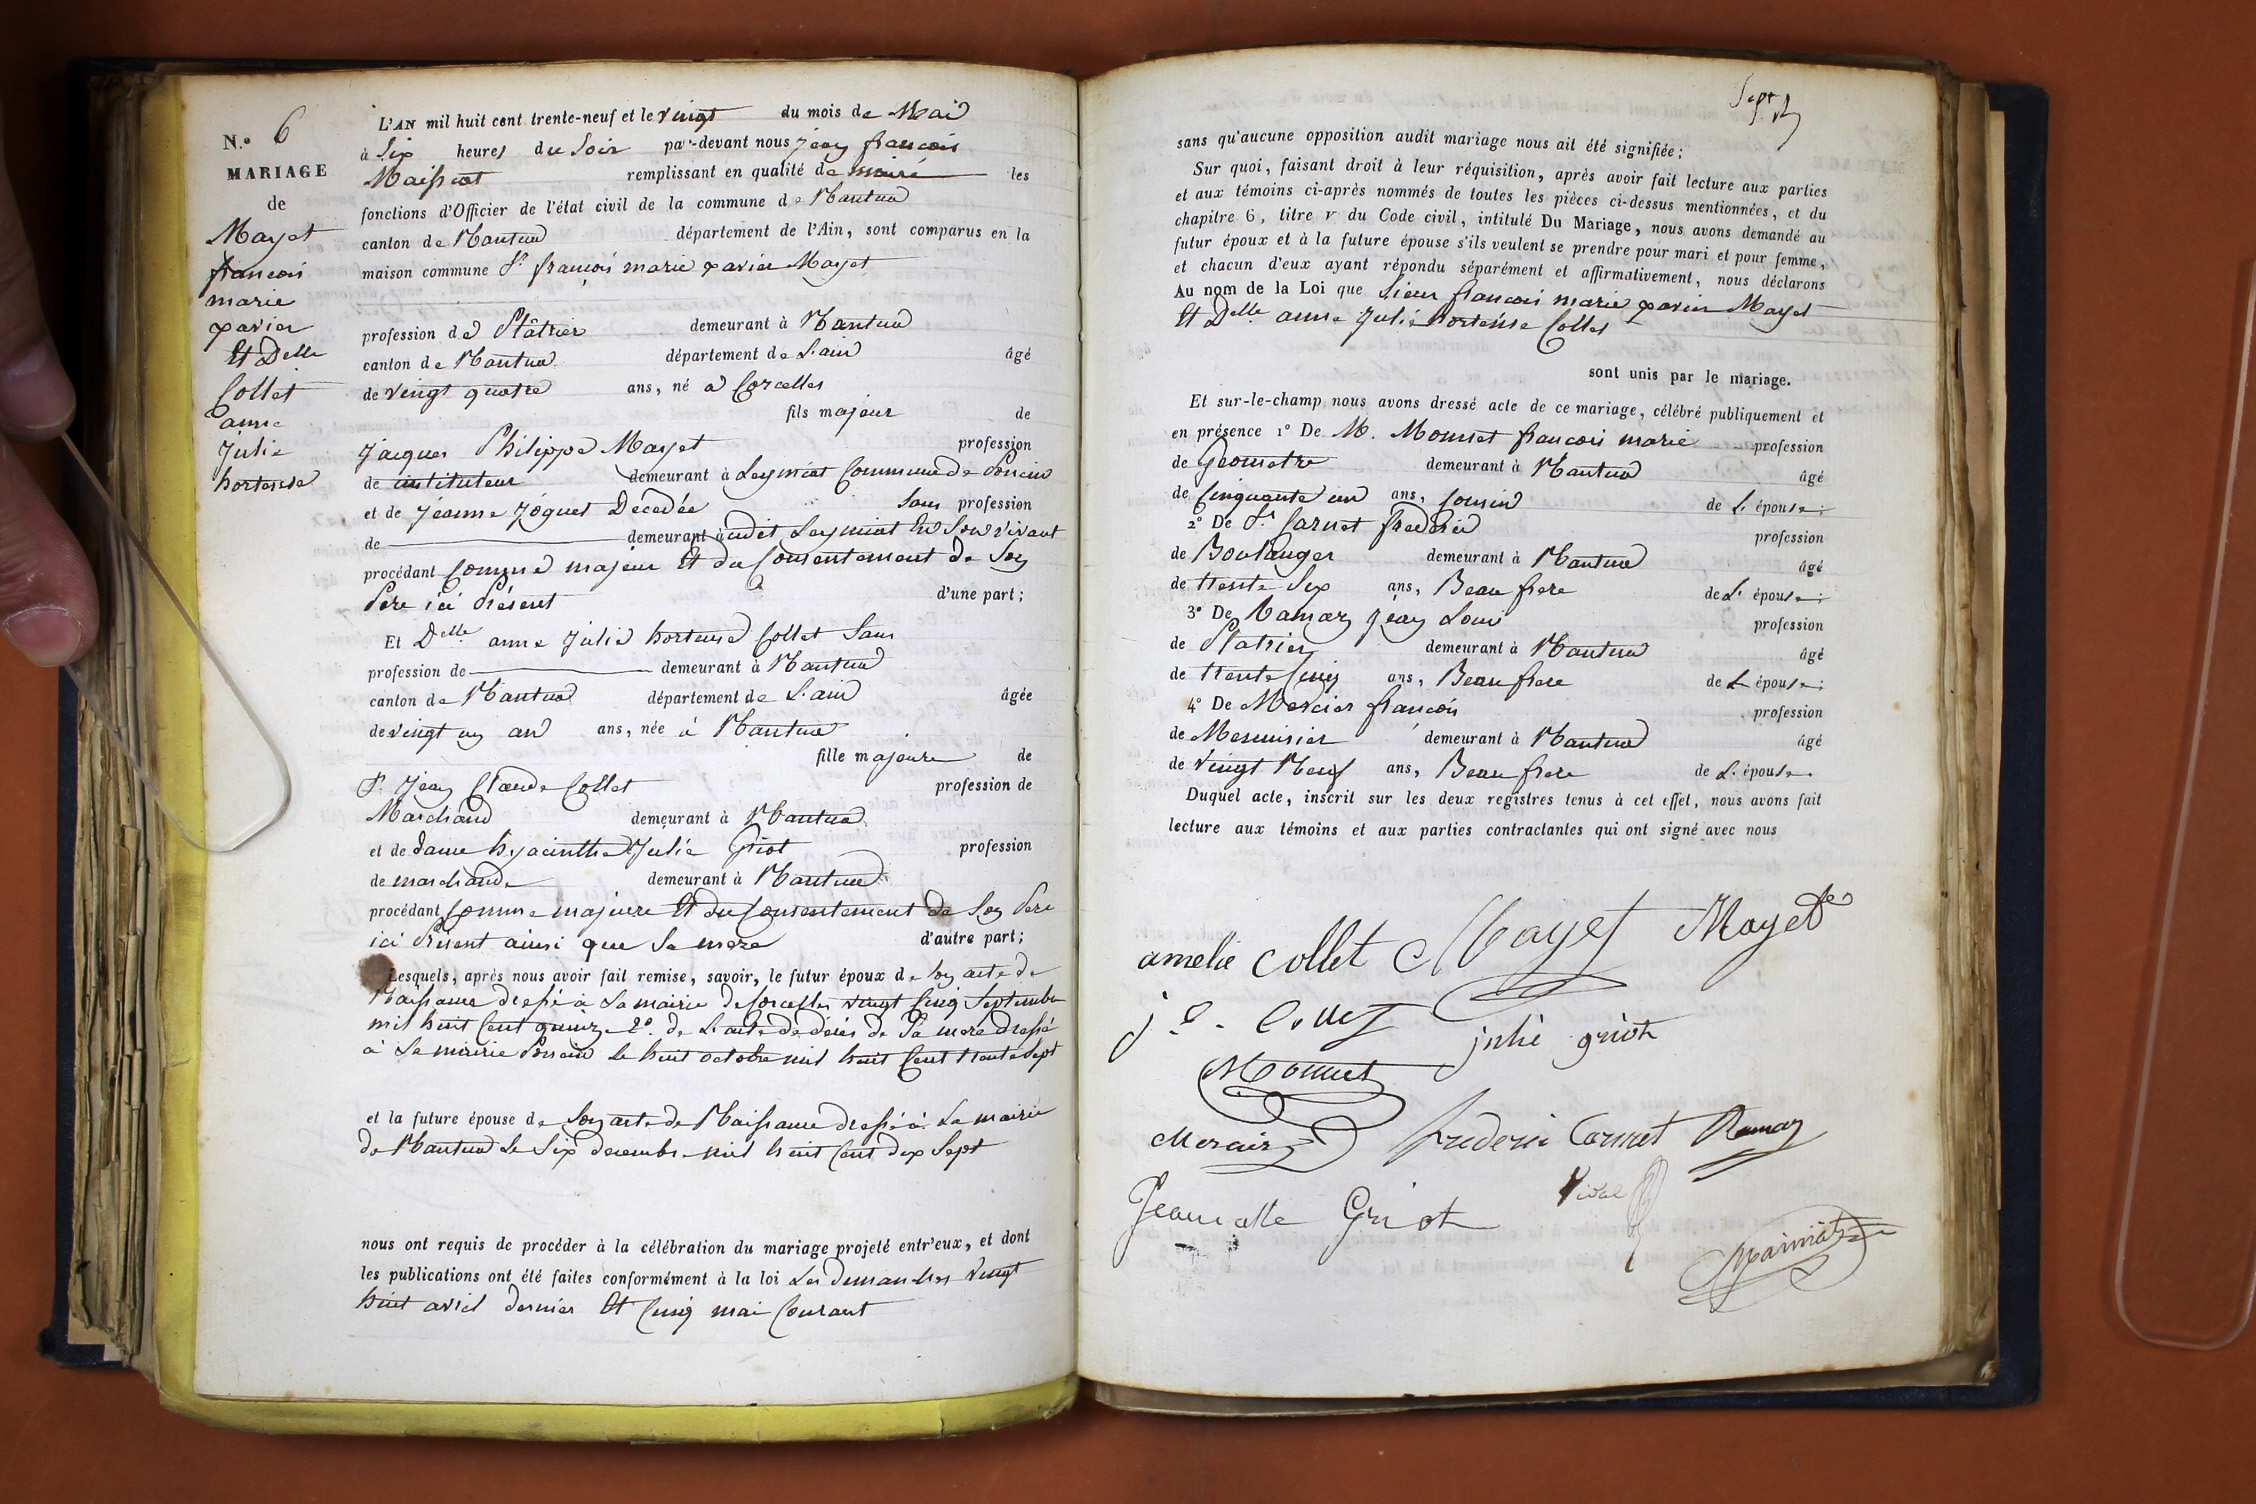 N.o 6
MARIAGE
de
Mayet
francois
marie
xavier
Et Delle
Collet
anne
Julie
hortense
L'AN mil huit cent trente-neuf et le vingt du mois de Mai
à Six heures du Soir par-devant nous jean francois
Maissiat remplissant en qualité de maire les
fonctions d'Officier de l'état civil de la commune de Nantua
canton de Nantua département de l'Ain, sont comparus en la
maison commune Sr. françois marie xavier Mayet
profession de Plâtrier demeurant à Nantua
canton de Nantua département de L'ain âgé
de vingt quatre ans, né a Corcelles
fils majeur de
Jacques Philippe Mayet profession
de instituteur demeurant à Leymiat Commune de Poncin
et de jéanne Joguet Décedée Sans profession
de demeurant audit Leymiat En Son vivant
procédant Comme majeur Et du Consentement de Son
Pere ici Présent d'une part;
Et Delle anne Julie hortense Collet Sans
profession de demeurant à Nantua
canton de Nantua département de L'ain âgée
de vingt un an ans, née à Nantua
fille majeure de
Sr. Jean Claude Collet profession de
Marchand demeurant à Nantua
et de dame hyacinthe Julie Griot profession
de marchande demeurant à Nantua
procédant Comme majeure Et du Consentement de Son Pere
ici Présent ainsi que Sa mere d'autre part;
Lesquels, après nous avoir fait remise, savoir, le futur époux de Son acte de
Naissance dressé à La mairie de Corcelles vingt Cinq Septembre
mil huit Cent quinze 2o. de L'acte de décès de Sa mere dressé
à La mairie Poncin Le huit octobre mil huit Cent trente Sept
et la future épouse de Son acte de Naissance dressé à La mairie
de Nantua Le Six decembre mil huit Cent dix Sept
nous ont requis de procéder à la célébration du mariage projeté entr'eux, et dont
les publications ont été faites conformément à la loi Les dimanches vingt
huit avril dernier Et Cinq mai Courant
Sept
sans qu'aucune opposition audit mariage nous ait été signifiée;
Sur quoi, faisant droit à leur réquisition, après avoir fait lecture aux parties
et aux témoins ci-après nommés de toutes les pièces ci-dessus mentionnées, et du
chapitre 6, titre v du Code civil, intitulé Du Mariage, nous avons demandé au
futur époux et à la future épouse s'ils veulent se prendre pour mari et pour femme,
et chacun d'eux ayant répondu séparément et affirmativement, nous déclarons
Au nom de la Loi que Sieur francois marie xavier Mayet
Et Delle anne Julie hortense Collet
sont unis par le mariage.
Et sur-le-champ nous avons dressé acte de ce mariage, célébré publiquement et
en présence 1o De M. Monnet francois marie profession
de Géometre demeurant à Nantua âgé
de Cinquante un ans, Cousin de L'épouse;
2o De Sr. Carnet frederic profession
de Boulanger demeurant à Nantua âgé
de trente Six ans, Beau frere de L'épouse;
3o De Ramaz Jéan Louis profession
de Platrier demeurant à Nantua âgé
de trente Cinq ans, Beau frere de L'épouse;
4o De Mercier francois profession
de Menuisier demeurant à Nantua âgé
de Vingt Neuf ans, Beau frere de L'épouse.
Duquel acte, inscrit sur les deux registres tenus à cet effet, nous avons fait
lecture aux témoins et aux parties contractantes qui ont signé avec nous
amelie Collet Mayet Mayet
j. C. Collet julie griot
Monnet
Mercier frederic Carnet Ramaz
Jeannette Griot Vidal
Maissiat